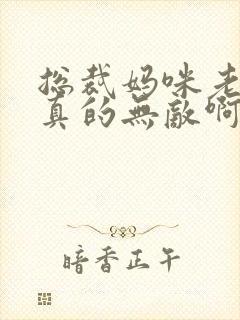 总裁妈咪老
真的無敵啊
暗香正午